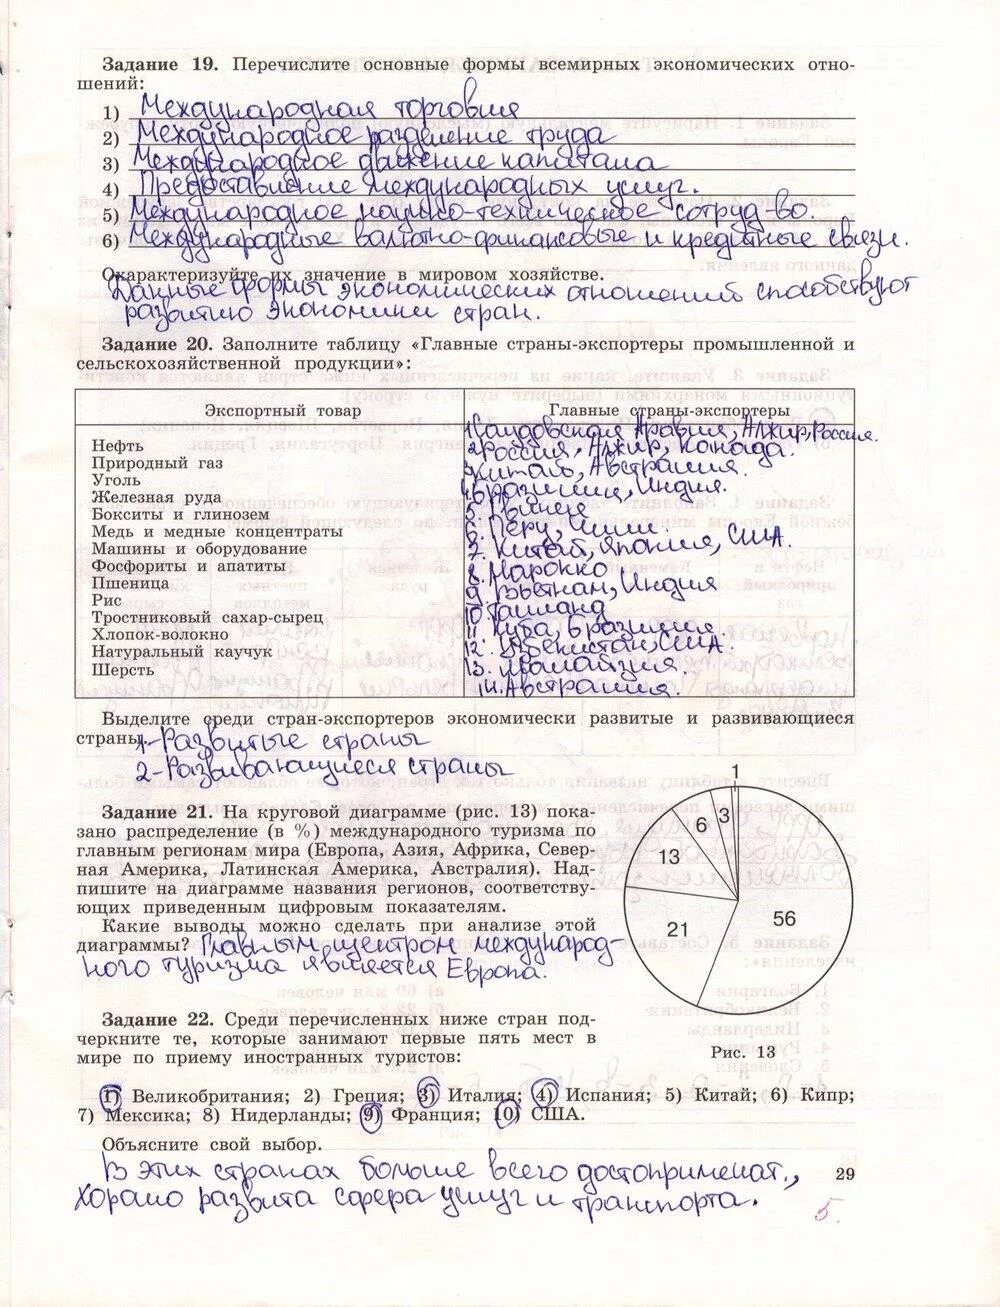 Задание 19. Перечислите основные формы всемирных экономических отно-
шений:
1) Международная торговля
2) Международное разделение труда
3) Международное движение капитала
4) Предоставление международных услуг.
5) Международное научно-техническое сотруд-во.
6) Международные валютно-финансовые и кредитные связи.
Охарактеризуйте их значение в мировом хозяйстве.
Данные формы экономических отношений способствуют
развитию экономики стран.
Задание 20. Заполните таблицу «Главные страны-экспортеры промышленной и
сельскохозяйственной продукции»:
Экспортный товар
Нефть
Природный газ
Уголь
Железная руда
Бокситы и глинозем
Медь и медные концентраты
Машины и оборудование
Фосфориты и апатиты
Пшеница
Рис
Тростниковый сахар-сырец
Хлопок-волокно
Натуральный каучук
Шерсть
Главные страны-экспортеры
1. Саудовская Аравия, Алжир, Россия.
2. Россия, Алжир, Канада.
3. Китай, Австралия.
4. Бразилия, Индия.
5. Гвинея
6. Перу, Чили.
7. Китай, Япония, США.
8. Марокко
9. Вьетнам, Индия
10 Таиланд
11. Куба, Бразилия.
12. Узбекистан, США.
13. Малайзия.
14. Австралия.
Выделите среди стран-экспортеров экономически развитые и развивающиеся
страны.
1-Развитые страны
2-Развивающиеся страны
Задание 21. На круговой диаграмме (рис. 13) пока-
зано распределение (в %) международного туризма по
главным регионам мира (Европа, Азия, Африка, Север-
ная Америка, Латинская Америка, Австралия). Над-
пишите на диаграмме названия регионов, соответству-
ющих приведенным цифровым показателям.
Какие выводы можно сделать при анализе этой
диаграммы? Главным центром международ-
ного туризма является Европа.
1
3
6
13
21
56
Рис. 13
Задание 22. Среди перечисленных ниже стран под-
черкните те, которые занимают первые пять мест в
мире по приему иностранных туристов:
1) Великобритания; 2) Греция; 3) Италия; 4) Испания; 5) Китай; 6) Кипр;
7) Мексика; 8) Нидерланды; 9) Франция; 10) США.
Объясните свой выбор.
В этих странах больше всего достопримечат.,
хорошо развита сфера услуг и транспорта.
29
5.